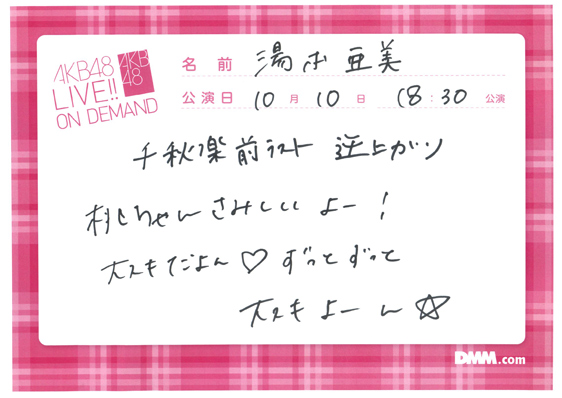 AKB48
LIVE!!
ON DEMAND
AKB
48
名前 湯本亜美
公演日 10月10日 18:30公演
千秋楽前ラスト 逆上がり
桃ちゃんさみしいよー!
大スキだよん♡ずっとずっと
大スキよーん☆
DMM.com